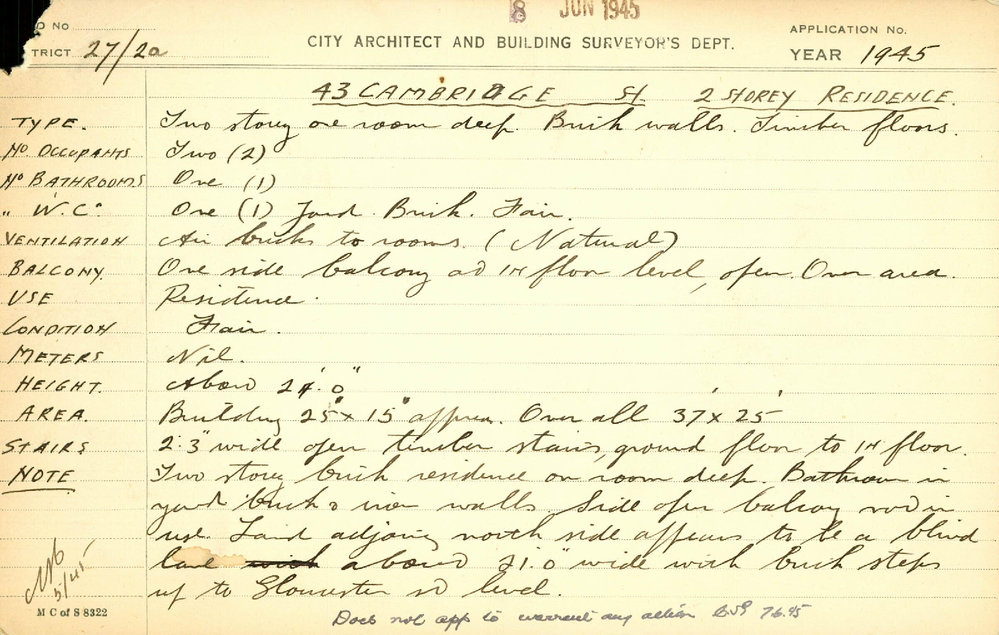 8 JUN 1945
D No
TRICT 27/2a
CITY ARCHITECT AND BUILDING SURVEYOR'S DEPT.
APPLICATION No.
YEAR 1945
43 CAMBRIDGE St 2 STOREY RESIDENCE.
TYPE. Two storey one room deep. Brick walls. Timber floors.
No OCCUPANTS Two (2)
No BATHROOMS One (1)
" W.Cs. One (1) Yard. Brick. Fair.
VENTILATION Air bricks to rooms. (Natural)
BALCONY One side balcony at 1st floor level, open. Over area.
USE Residence.
CONDITION Fair.
METERS Nil.
HEIGHT. About 24'.0"
AREA. Building 25' x 15' approx. Over all 37' x 25'
STAIRS 2'.3" wide open timber stairs, ground floor to 1st floor.
NOTE Two storey brick residence one room deep. Bathroom in
yard brick & iron walls. Side open balcony not in
use. Land adjoing north side appears to be a blind
lane wich about 21'.0" wide with brick steps
up to Gloucester st level.
5/45
M C of S 8322
Does not app to warrant any action 7.6.45